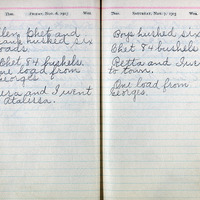 Ther. FRIDAY, NOV. 6, 1903 Wea.
Glen, Chet and
husked six
loads
Chet 84 bushels.
One load from
Georges
and I went
to Atalissa.
Ther. SATURDAY, NOV. 7, 1903 Wea.
Boys husked six
Chet 84 bushels
Retta and I
to town.
One load from
Georges.